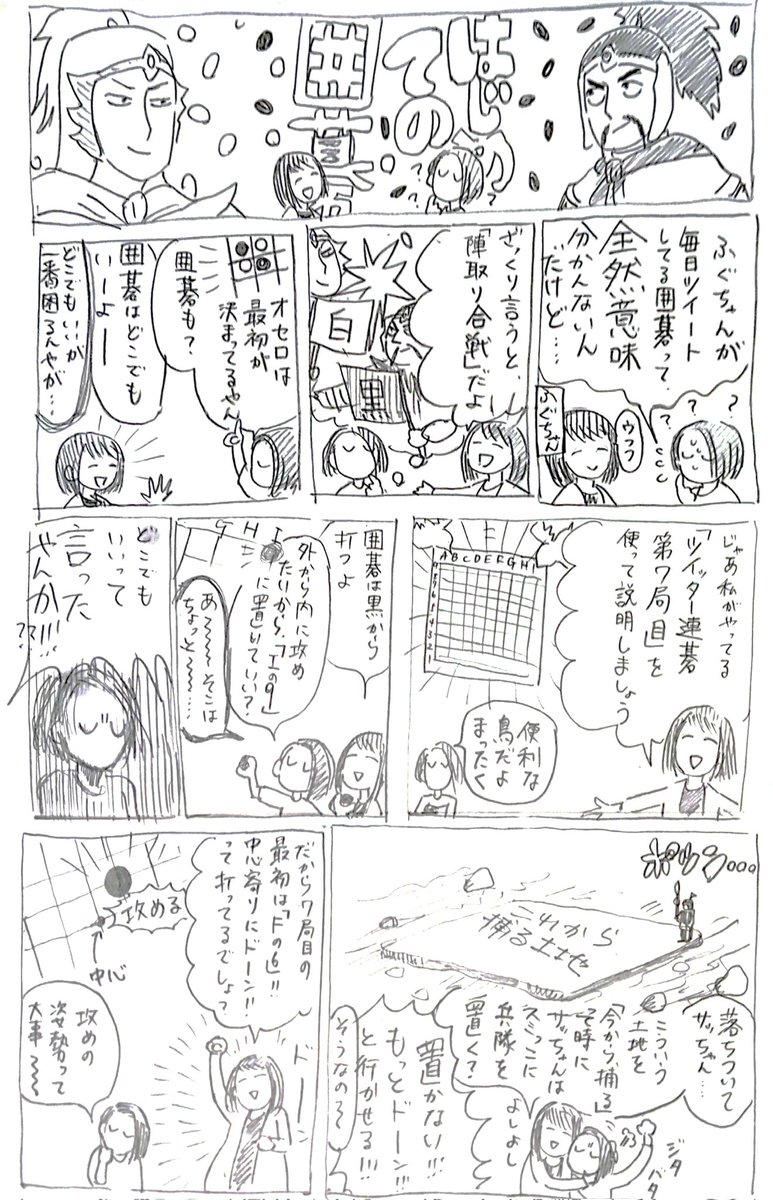 はじめ
ての
囲碁
?
?
ふぐちゃんが
毎日ツイート
してる囲碁って
全然意味
分かんないん
だけど…
?
?
?
ウフフ
ふぐちゃん
ざっくり言うと、
「陣取り合戦」だよ
白
黒
オセロは
最初が
決まってるやん
囲碁も?
囲碁はどこでも
いーよー
どこでもいいが
一番困るんやが…
じゃあ私がやってる
「ツイッター連碁
第7局目」を
使って説明しましょう
ABCDEFGHI
9
8
7
6
5
4
3
2
1
便利な
鳥だよ
まったく
囲碁は黒から
打つよ
G H I
外から内に攻め
たいから、「Iの9」
に置いていい?
あ〜〜〜そこは
ちょっと〜〜〜…
どこでも
いいって
言った
やんか!!!
??
ポツン…
これから
捕る土地
落ちついて
サッちゃん…
こういう
土地を
「今から捕る」
って時に
サッちゃんは
スミっこに
兵隊を
置く?
よしよし
ジタ
バタ
置かない!!!
もっとドーン!!
と行かせる!!!
そうなの〜
だから7局目の
最初は「Fの6」!!
中心寄りにドーン!!
って打ってるでしょ?
ドー
攻める
中心
攻めの
姿勢って
大事〜〜